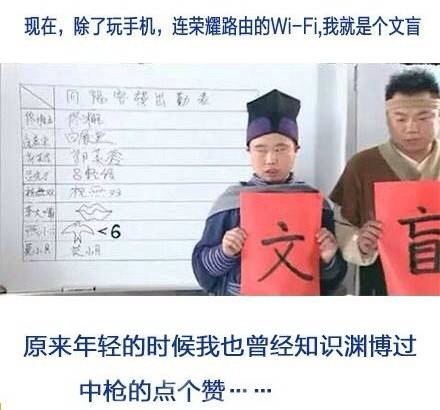 现在，除了玩手机，连荣耀路由的Wi-Fi,我就是个文盲
同福客栈出勤表
郭芙蓉
吕轻侯
祝无双 祝无双
李大嘴
<6
文 盲
原来年轻的时候我也曾经知识渊博过
中枪的点个赞……